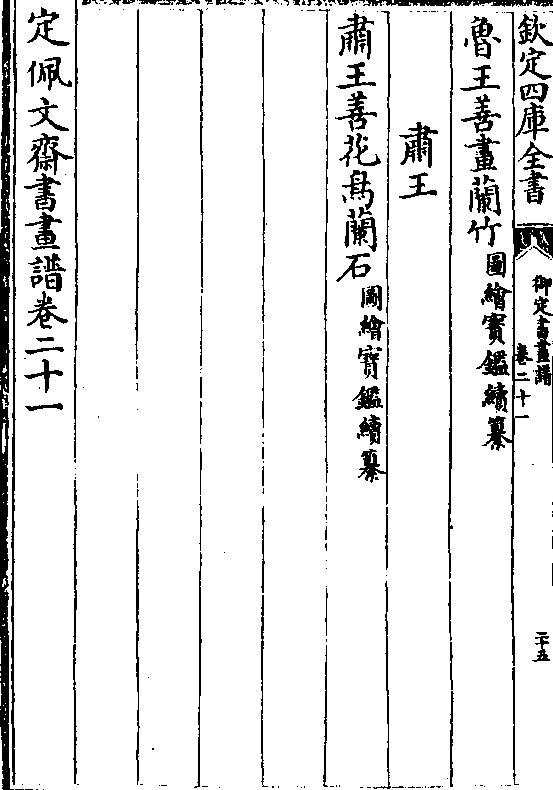 欽定四庫全書
御定書畫譜
卷二十一
二十五
魯王善畫蘭竹圖繪寳鑑續纂
肅王
肅王善花鳥蘭石圖繪寳鑑續纂
定佩文齋書畫譜卷二十一